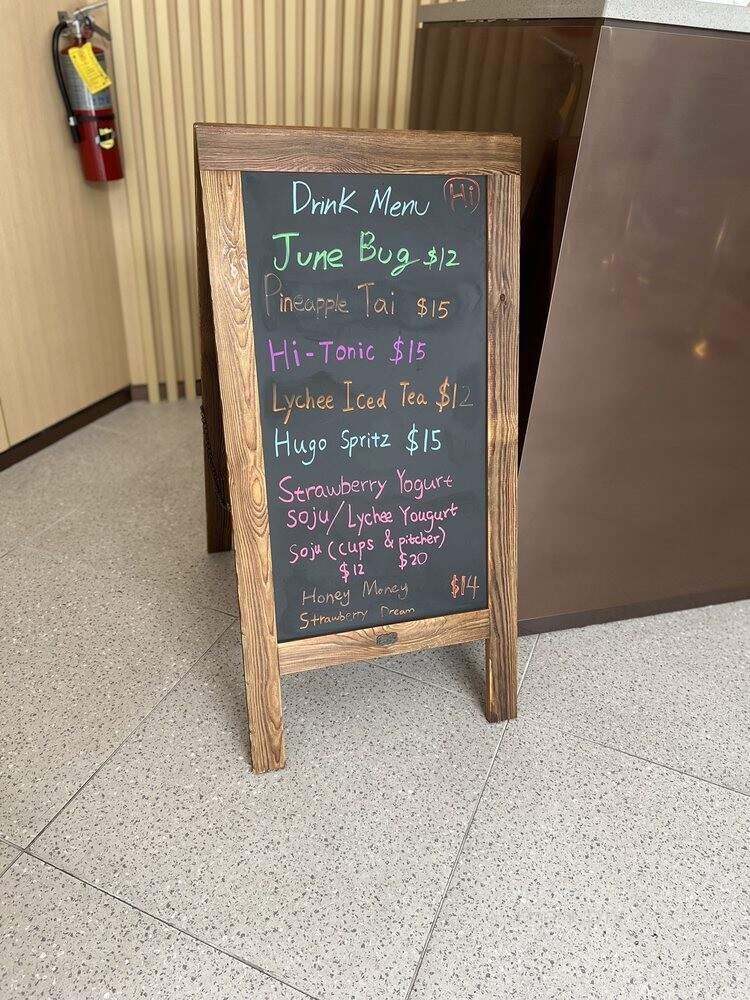 Drink Menu Hi
June Bug $12
Pineapple Tai $15
Hi-Tonic $15
Lychee Iced Tea $12
Hugo Spritz $15
Strawberry Yogurt
Soju/Lychee Yougurt
Soju (cups & pitcher)
$12 $20
Honey Money $14
Strawberry Dream